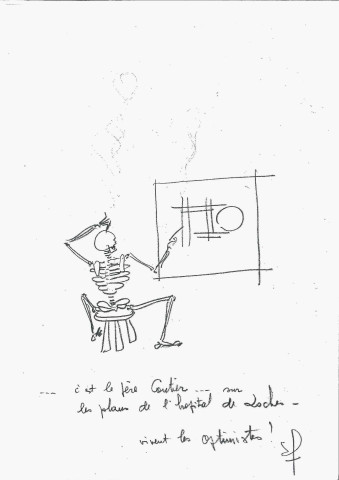 --- c'est le père Coutier --- sur
les plans de l'hopital de Loches -
vivent les optimistes !